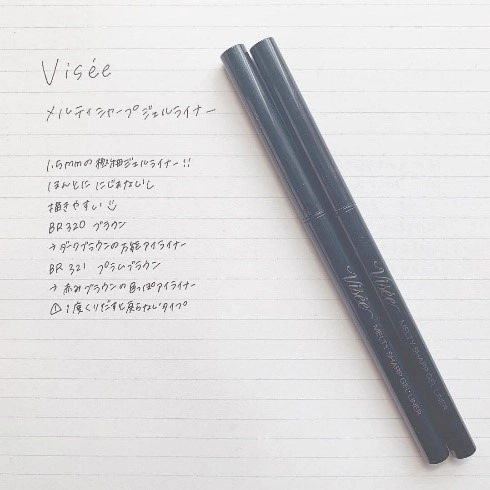 Visée
メルティシャープジェルライナー
1.5mmの極細ジェルライナー!!
ほんとに にじまないし
描きやすい
BR320 ブラウン
→ダークブラウンの万能アイライナー
BR 321 プラムブラウン
→ 赤みブラウンの色っぽアイライナー
⚠1度くりだすと戻らないタイプ
Visée
MELTY SHARP GEL LINER
Visée
MELTY SHARP GEL LINER